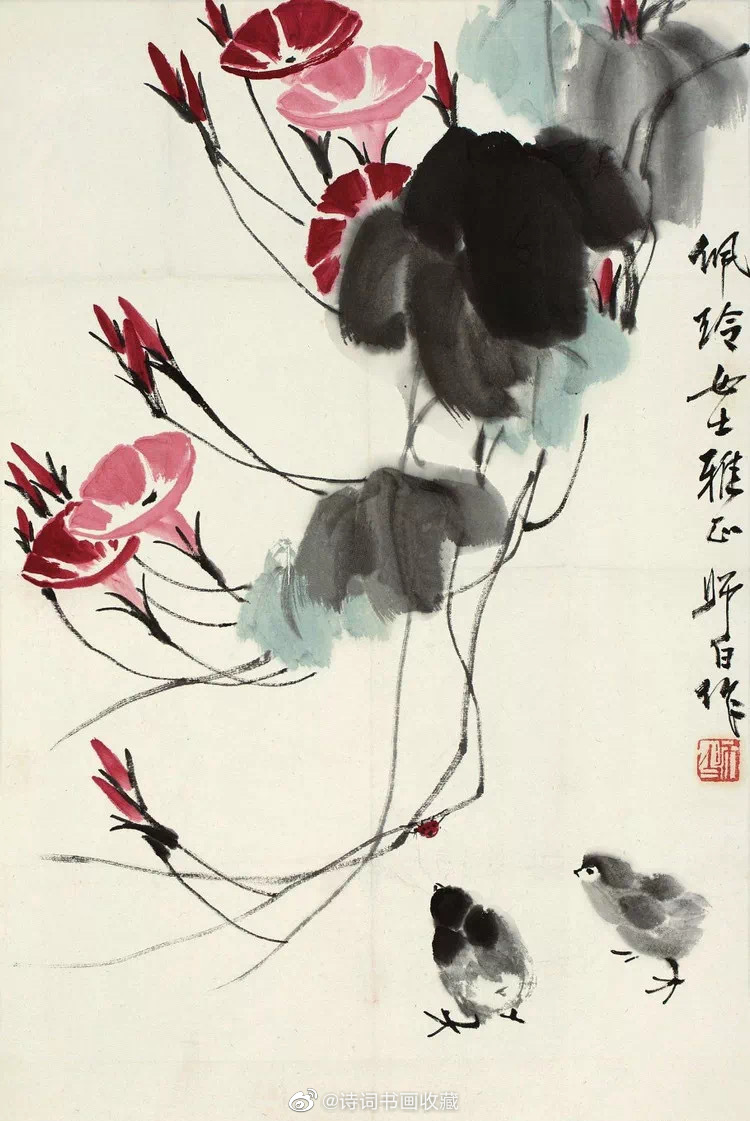 佩玲女士雅正 师白作
@诗词书画收藏